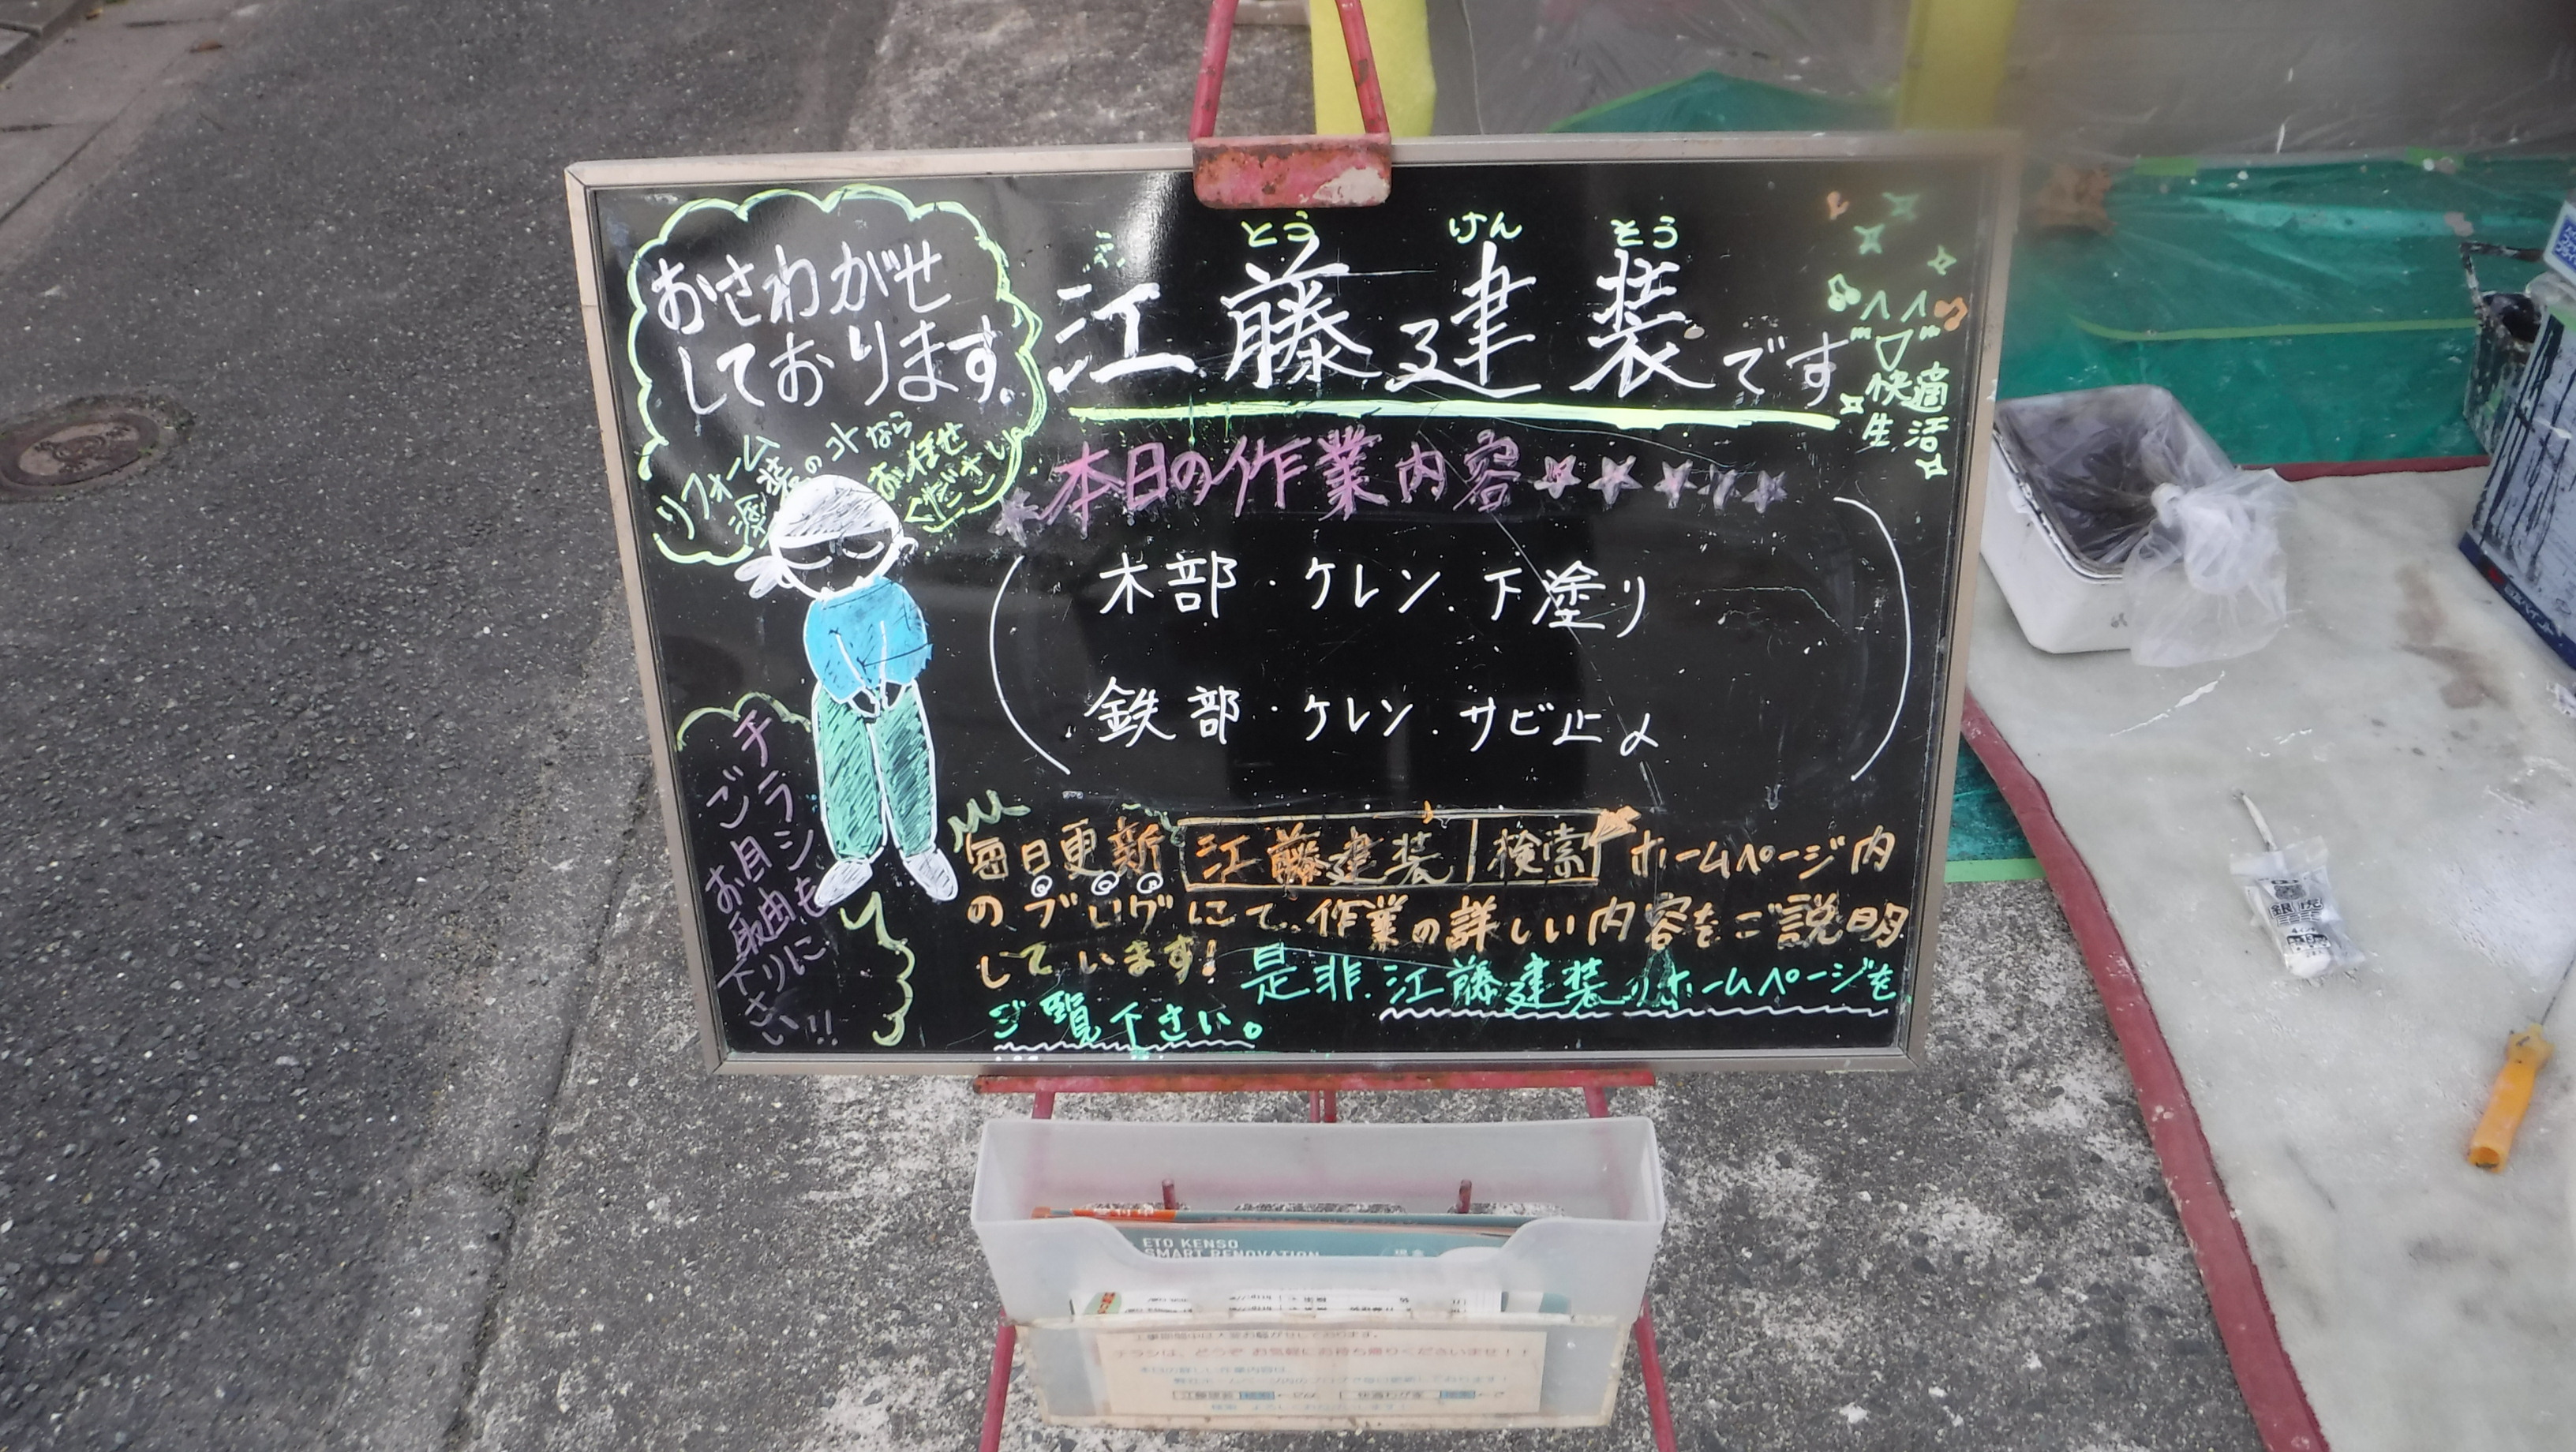 おさわがせ
しております。
リフォーム
塗装の事なら
お任せ
ください
とう けん そう
江藤建装です
快適
生活
本日の作業内容
木部・ケレン・下塗り
鉄部・ケレン・サビ止め
チラシも
ご自由に
お取り下さい!!
毎日更新 江藤建装 検索 ホームページ内
のブログにて、作業の詳しい内容をご説明
しています! 是非、江藤建装ホームページを
ご覧下さい。
ETO KENSO
SMART RENOVATION
チラシは、どうぞ お気軽にお持ち帰りくださいませ!!